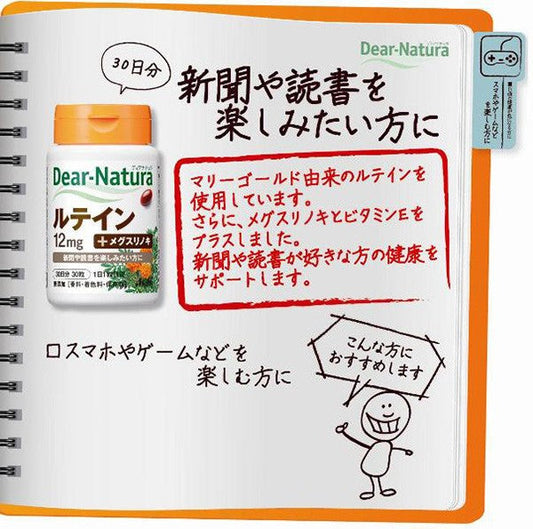 Dear-Natura
30日分
新聞や読書を
楽しみたい方に
スマホやゲームなど
を楽しむ方に
Dear-Natura
ディアナチュラ
ルテイン
12mg
+メグスリノキ
新聞や読書を楽しみたい方に
30日分 30粒
マリーゴールド由来のルテインを
使用しています。
さらに、メグスリノキとビタミンEを
プラスしました。
新聞や読書が好きな方の健康を
サポートします。
口スマホやゲームなどを
楽しむ方に
こんな方に
おすすめします